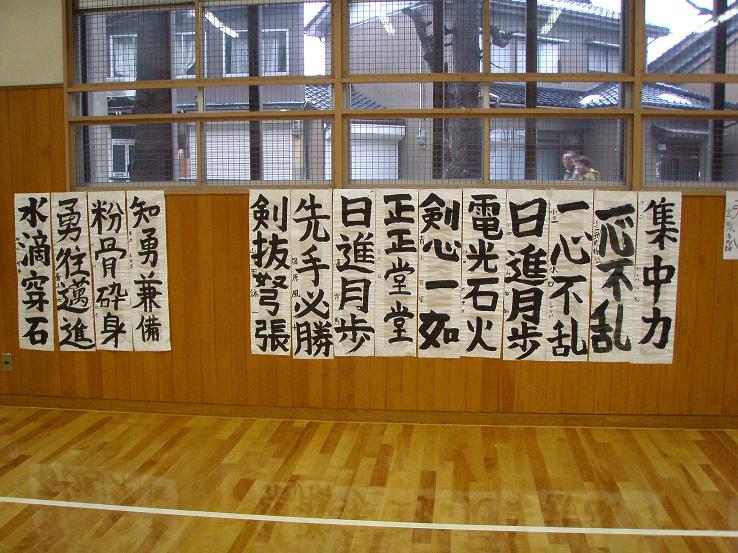 集中力
一心不乱
一心不乱
日進月歩
電光石火
剣心一如
正正堂堂
日進月歩
先手必勝
剣抜弩張
知勇兼備
粉骨砕身
勇往邁進
水滴穿石